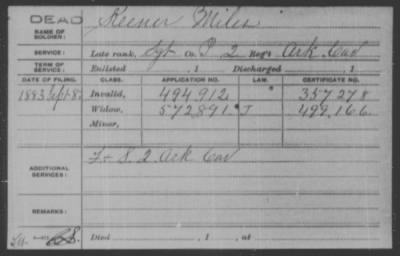 DEAD
NAME OF SOLDIER: Keener Miles
SERVICE: Late rank, Sgt Co. P 2 Reg't Ark Cav
TERM OF SERVICE: Enlisted , 1 Discharged , 1
DATE OF FILING. CLASS. APPLICATION NO. LAW. CERTIFICATE NO.
1883 Sept 8 Invalid, 494.912 357.278
Widow, 572.891 J 499.166
Minor,
ADDITIONAL SERVICES: F + S. 2 Ark Cav
REMARKS:
Died , 1 , at